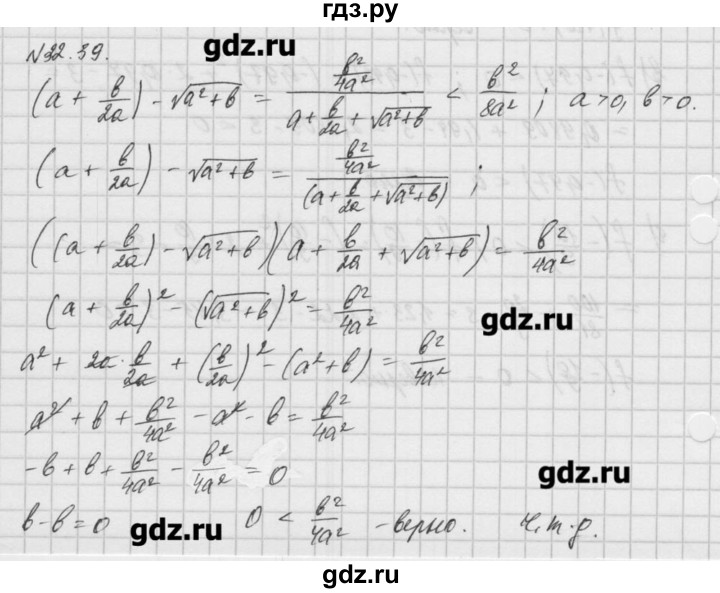 гдз.ру
№32.39.
gdz.ru
(a + b/2a) - √(a² + b) = (b²/4a²)/(a + b/2a + √(a² + b)) < b²/8a² ; a>0, b>0.
(a + b/2a) - √(a² + b) = (b²/4a²)/((a + b/2a + √(a² + b))) ;
((a + b/2a) - √(a² + b))(a + b/2a + √(a² + b)) = b²/4a²
(a + b/2a)² - (√(a² + b))² = b²/4a²
gdz.ru
a² + 2a·b/2a + (b/2a)² - (a² + b) = b²/4a²
a² + b + b²/4a² - a² - b = b²/4a²
-b + b + b²/4a² - b²/4a² = 0
gdz.ru
b - b = 0 0 < b²/4a² - верно. Ч.т.д.
gdz.ru
gdz.ru